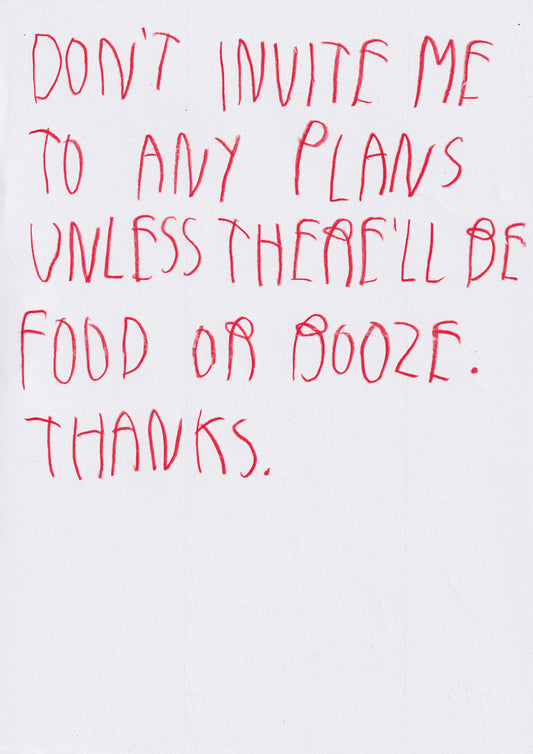 DON'T INVITE ME
TO ANY PLANS
UNLESS THERE'LL BE
FOOD OR BOOZE.
THANKS.